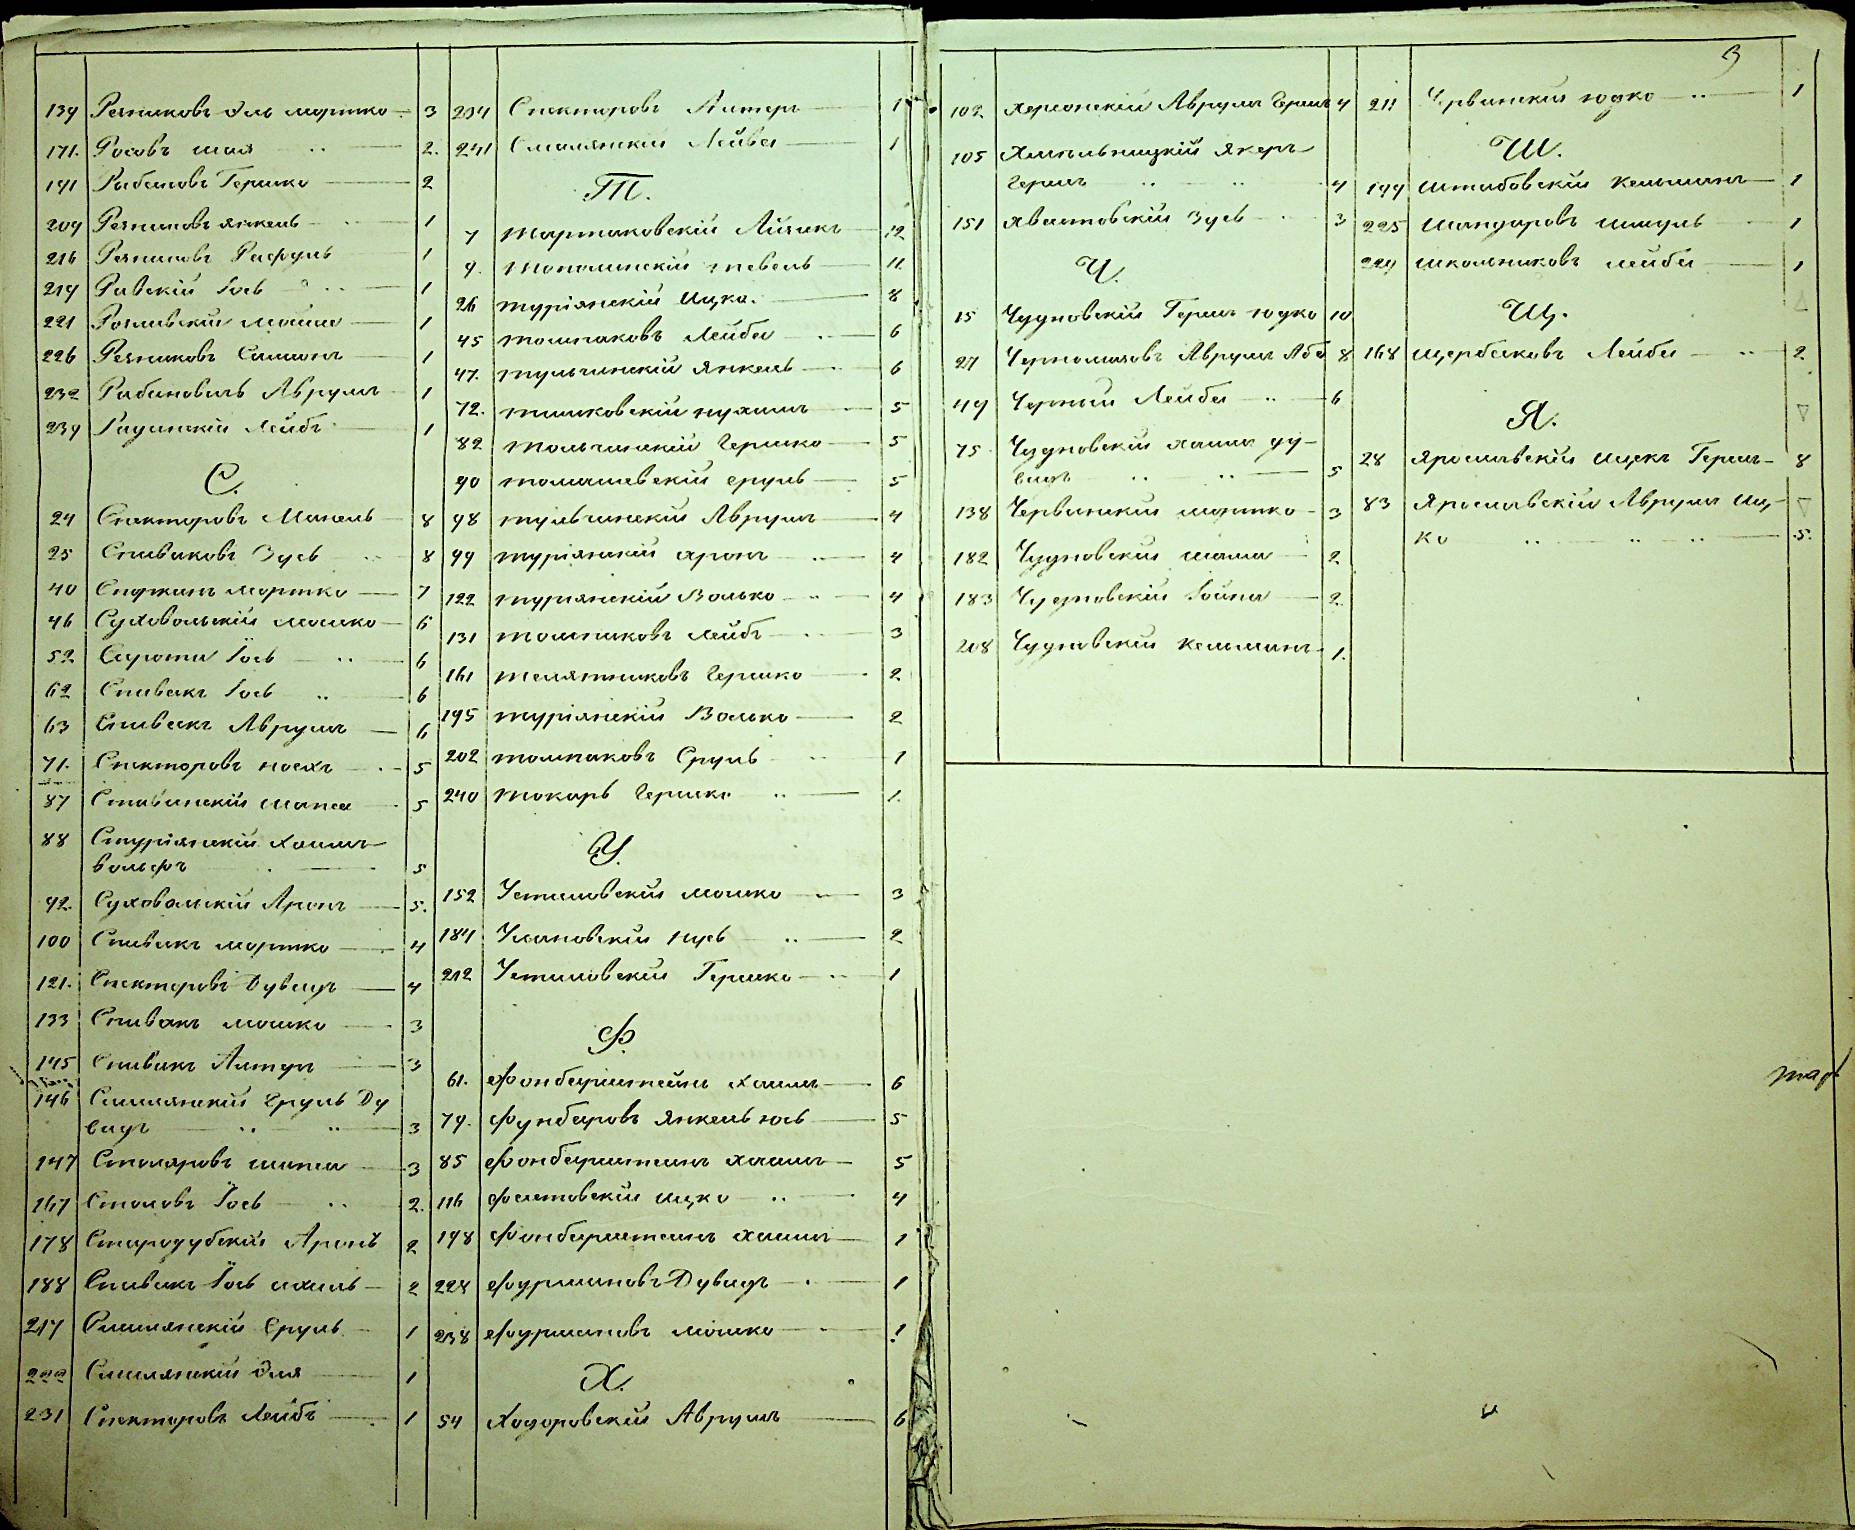 139 Резниковъ Эль Мортко 3
171. Росовъ Шая 2.
191 Рабиновъ Гершко 2
209 Резниковъ Янкель 1
216 Резниковъ Рафуль 1
219 Равскій Іось 1
221 Рогивскій Мошко 1
226 Резниковъ Симонъ 1
232 Рабиновичъ Аврумъ 1
239 Гадинскій Лейбъ 1
С.
24 Спекторовъ Манель 8
25 Спиваковъ Зусь 8
40 Спуткинъ Мортко 7
46 Суховольскій Мошко 6
52 Сирота Іось 6
62 Спивакъ Іось 6
63 Спивакъ Аврумъ 6
71. Спекторовъ Носехъ 5
87 Ставинскій Шапса 5
88 Стуріянскій Хаимъ-
Вольфъ 5
92. Суховольскій Аронъ 5.
100 Спивакъ Мортко 4
121. Спекторовъ Дувидъ 4
133 Спивакъ Мошко 3
145 Спивакъ Алтеръ 3
146 Смилянскій Сруль Ду
видъ 3
147 Столяровъ Шапса 3
167 Столовъ Іось 2.
178 Стародубскій Аронъ 2
188 Спивакъ Іось Ихиль 2
217 Смилянскій Сруль 1
222 Смилянскій Эля 1
231 Спекторовъ Лейбъ 1
204 Спекторовъ Алтеръ 1
241 Смилянскій Лейба 1
Т.
7 Тартаковскій Айзикъ 12
9. Топалинскій Тевель 11.
26 Туріянскій Ицко. 8
45 Толмаковъ Лейба 6
47. Тульчинскій Янкель 6
72. Тишковскій Нухимъ 5
82 Тольчинскій Гершко 5
90 Томашевскій Сруль 5
98 Тульчинскій Аврумъ 4
99 Туріянскій Аронъ 4
122 Туріянскій Волько 4
131 Толмаковъ Лейбъ 3
161 Телятниковъ Гершко 2
195 Туріянскій Волько 2
202 Толмаковъ Сруль 1
240 Токарь Гершко 1.
У.
152 Устиловскій Мошко 3
184 Улановскій Нусь 2
212 Устиловскій Гершко 1
Ф.
61. Фонберштейнъ Хаимъ 6
79. Фунбаровъ Янкель Юсь 5
85 Фонберштеинъ Хаимъ 5
116 Фастовскій Ицко 4
198 Фонберштеинъ Хаимъ 1
228 Фурмановъ Дувидъ 1
238 Фурмановъ Мошко 1
Х.
54 Ходоровскій Аврумъ 6
3
102 Херсонскій Аврумъ Гершъ 4
105 Хмельницкій Якеръ
Гершъ 4
151 Хвастовскій Зусь 3
Ч.
15 Чудновскій Гершъ Юдко 10
27 Черномазовъ Аврумъ Аба 8
49 Черный Лейба 6
75 Чудновскій Хаимъ Ду-
видъ 5
138 Червинскій Мортко 3
182 Чудновскій Шама 2
183 Чудновскій Гойна 2
208 Чудновскій Кельманъ 1.
211 Червинскій Юдко 1
Ш.
199 Штабовскій Кельманъ 1
225 Шандаровъ Шмуль 1
229 Школьниковъ Лейба 1
Щ.
168 Щербаковъ Лейба 2
Я.
28 Ярославскій Ицекъ Гершъ 8
83 Ярославскій Аврумъ Иц-
ко 5.